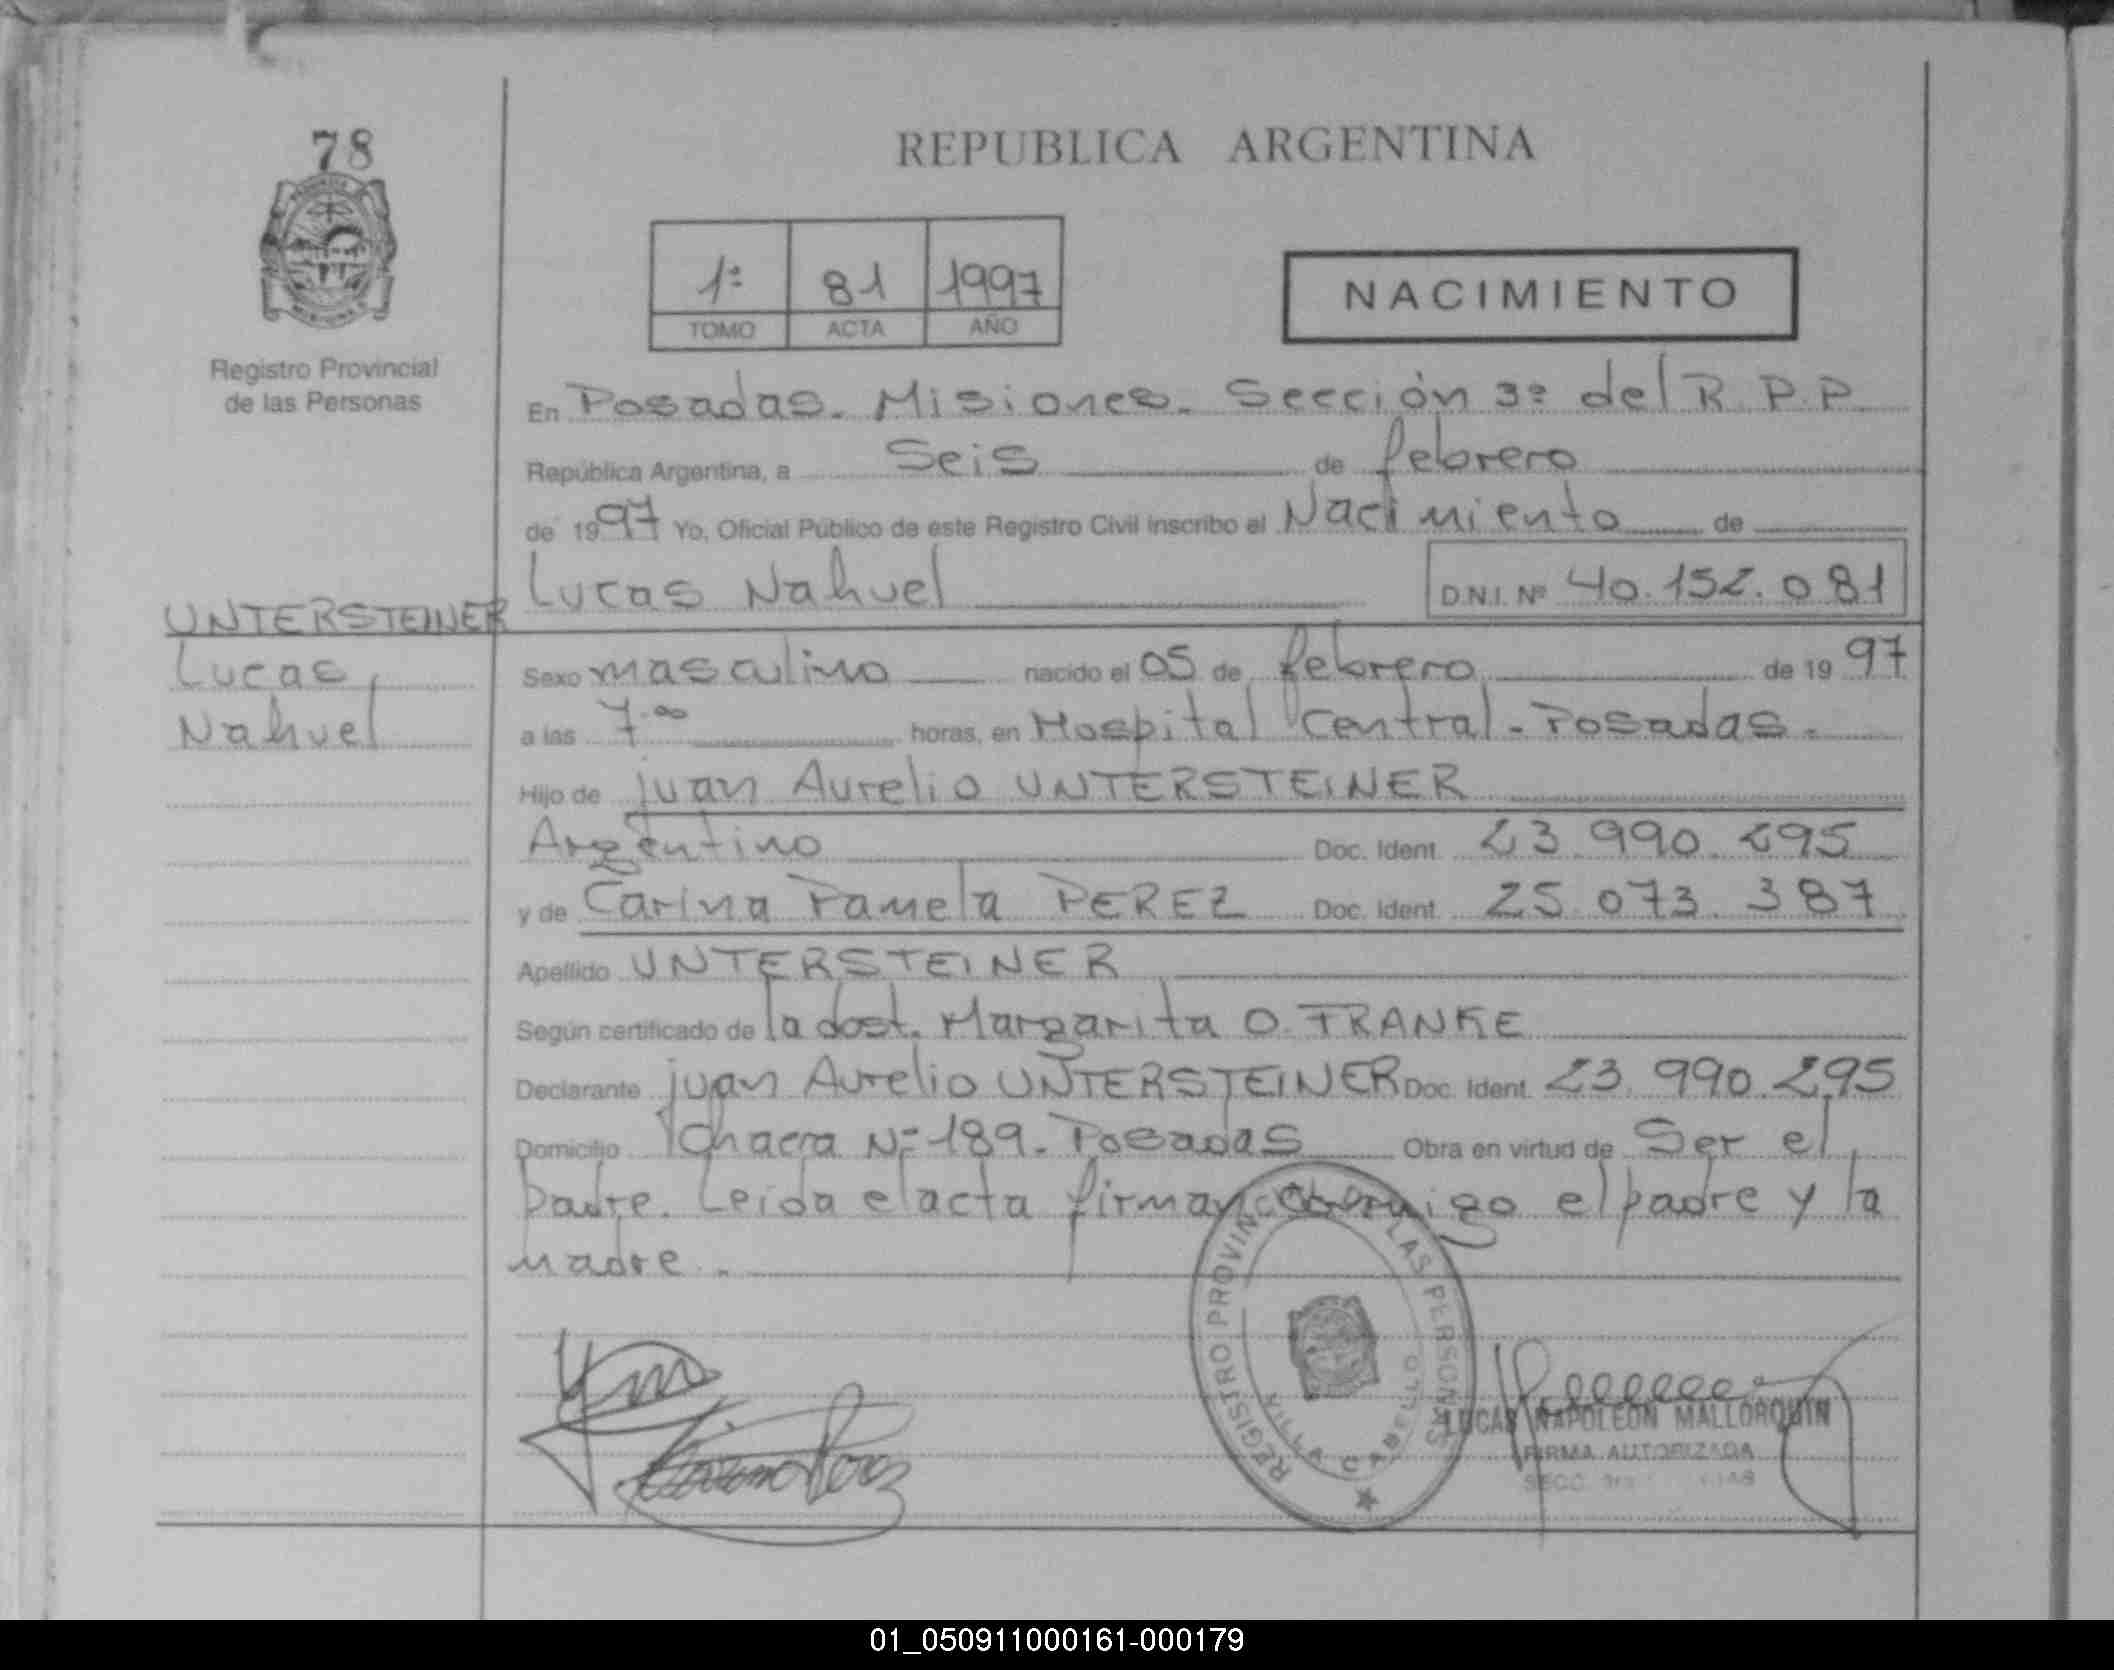 78
REPUBLICA ARGENTINA
1º 81 1997
TOMO ACTA AÑO
NACIMIENTO
Registro Provincial
de las Personas
En Posadas. Misiones. Sección 3º del R.P.P.
República Argentina, a Seis de febrero
de 1997 Yo, Oficial Público de este Registro Civil inscribo el Nacimiento de
Lucas Nahuel D.N.I. Nº 40.152.081
UNTERSTEINER
Lucas
Nahuel
Sexo masculino nacido el 05 de febrero de 1997
a las 7.00 horas, en Hospital Central - Posadas.
Hijo de Juan Aurelio UNTERSTEINER
Argentino Doc. Ident. 23.990.295
y de Carina Pamela PEREZ Doc. Ident. 25.073.387
Apellido UNTERSTEINER
Según certificado de la dost. Margarita O. FRANKE
Declarante Juan Aurelio UNTERSTEINER Doc. Ident. 23.990.295
Domicilio Chacra Nº 189. Posadas Obra en virtud de Ser el
padre. Leida el acta firman conmigo el padre y la
madre.
REGISTRO PROVINCIAL DE LAS PERSONAS
VILLA CABELLO
LUCAS NAPOLEON MALLORQUIN
FIRMA AUTORIZADA
SECC. 3ra
01_050911000161-000179